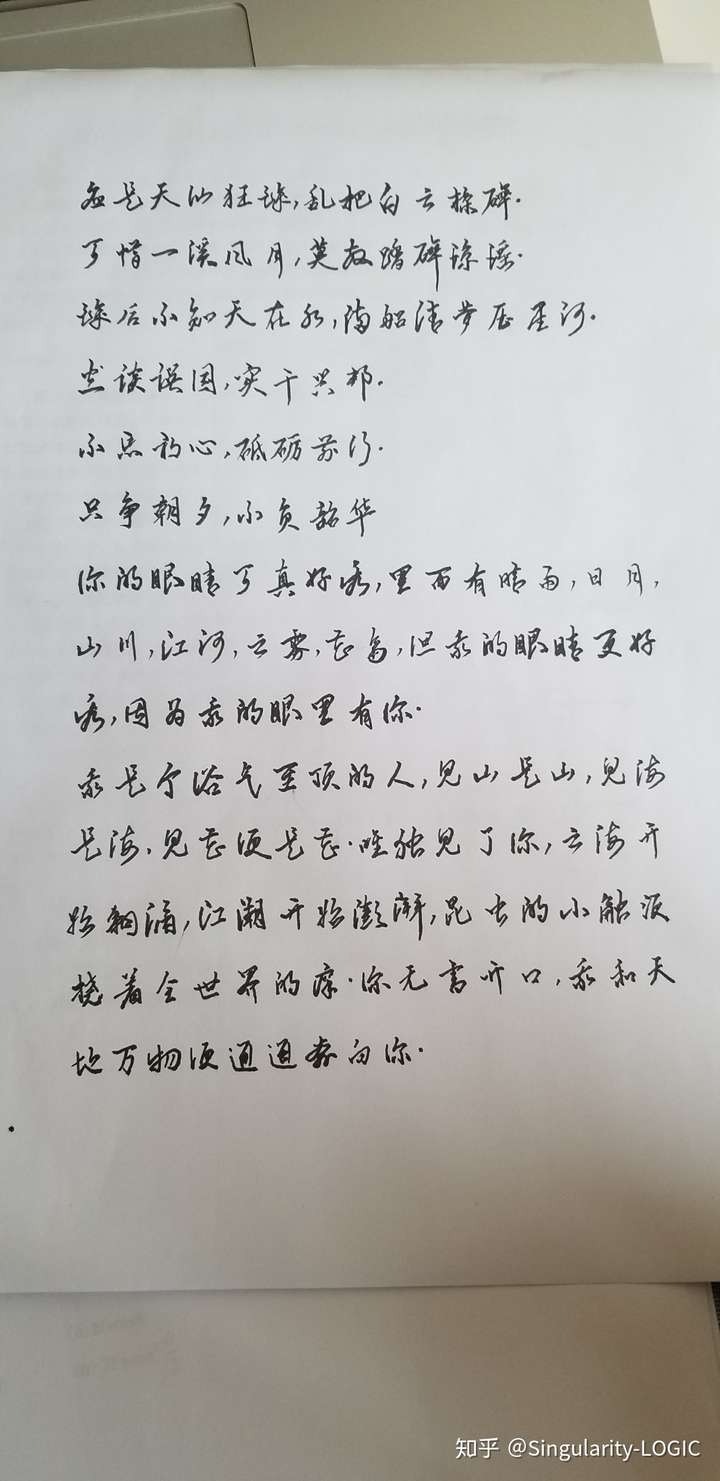 应是天仙狂醉,乱把白云揉碎.
可惜一溪风月,莫教踏碎琼瑶.
醉后不知天在水,满船清梦压星河.
空谈误国,实干兴邦.
不忘初心,砥砺前行.
只争朝夕,不负韶华
你的眼睛可真好看,里面有晴雨,日月,
山川,江河,云雾,花鸟,但我的眼睛更好
看,因为我的眼里有你.
我是个俗气至顶的人,见山是山,见海
是海,见花便是花.唯独见了你,云海开
始翻涌,江潮开始澎湃,昆虫的小触须
挠着全世界的痒.你无需开口,我和天
地万物便通通奔向你.
知乎 @Singularity-LOGIC